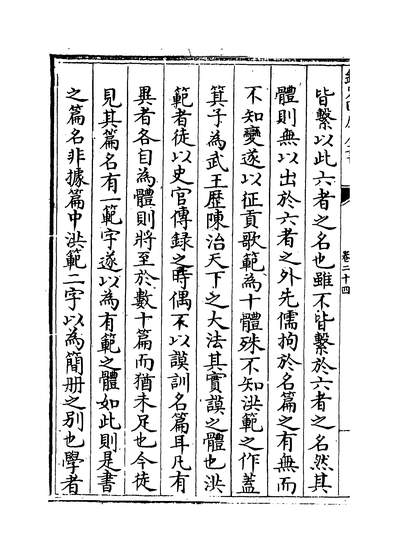 皆繫以此六者之名也雖不皆繫於六者之名然其
體則無以出於六者之外先儒拘於名篇之有無而
不知變遂以征貢歌範為十體殊不知洪範之作蓋
箕子為武王歷陳治天下之大法其實謨之體也洪
範者徒以史官傳録之時偶不以謨訓名篇耳凡有
異者各自為體則將至於數十篇而猶未足也今徒
見其篇名有一範字遂以為有範之體如此則是書
之篇名非據篇中洪範二字以為簡册之别也學者
卷二十四